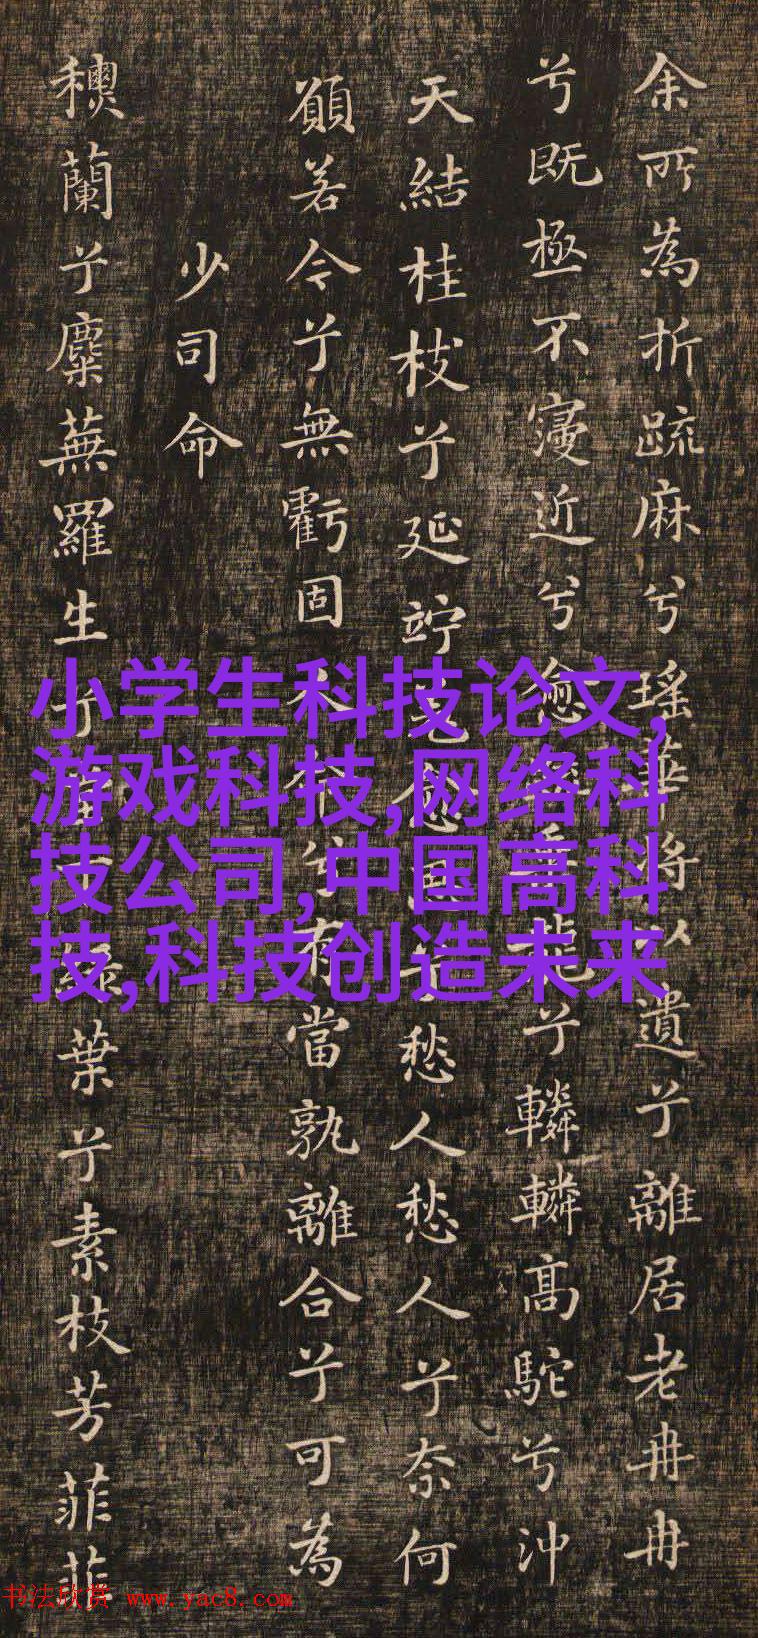 余所為折踈麻兮瑤華将以遺兮離居老冉冉
兮既極不寖近兮愈龍兮轔轔高駝兮沖
天結桂枝兮延竚羌愈思兮愁人愁人兮奈何
願若今兮無虧固人命兮有當孰離合兮可為
少司命
穮蘭兮麋蕪羅生兮緑葉兮素枝芳菲菲
小学生科技论文,
游戏科技,网络科
技公司,中国高科
技,科技创造未来
书法欣赏 www.yac8.com